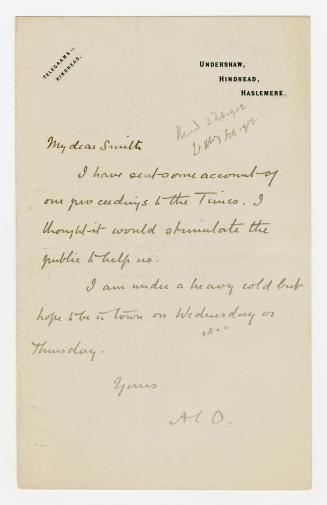 TELEGRAMS—
HINDHEAD.
UNDERSHAW,
HINDHEAD,
HASLEMERE.
My dear Smith
I have sent some account of
our proceedings to the Times. I
thought it would stimulate the
public to help us.
I am under a heavy cold but
hope to be in town on Wednesday or
Thursday.
Yours.
A C D.